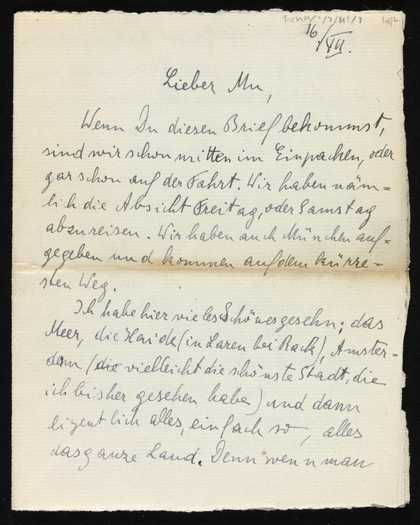 16/VII.
Lieber Mu,
Wenn Du diesen Brief bekommst,
sind wir schon mitten im Einpacken, oder
gar schon auf der Fahrt. Wir haben näm-
lich die Absicht Freitag, oder Samstag
abenreisen. Wir haben auch München auf-
gegeben und kommen auf dem kürze-
sten Weg.
Ich habe hier vieles Schönes gesehn; das
Meer, die Haide (in Laren bei Rack), Amster-
dam (die vielleicht die schönste Stadt, die
ich bisher gesehen habe) und dann
eigentlich alles, einfach so, alles
das ganze Land. Denn wenn man